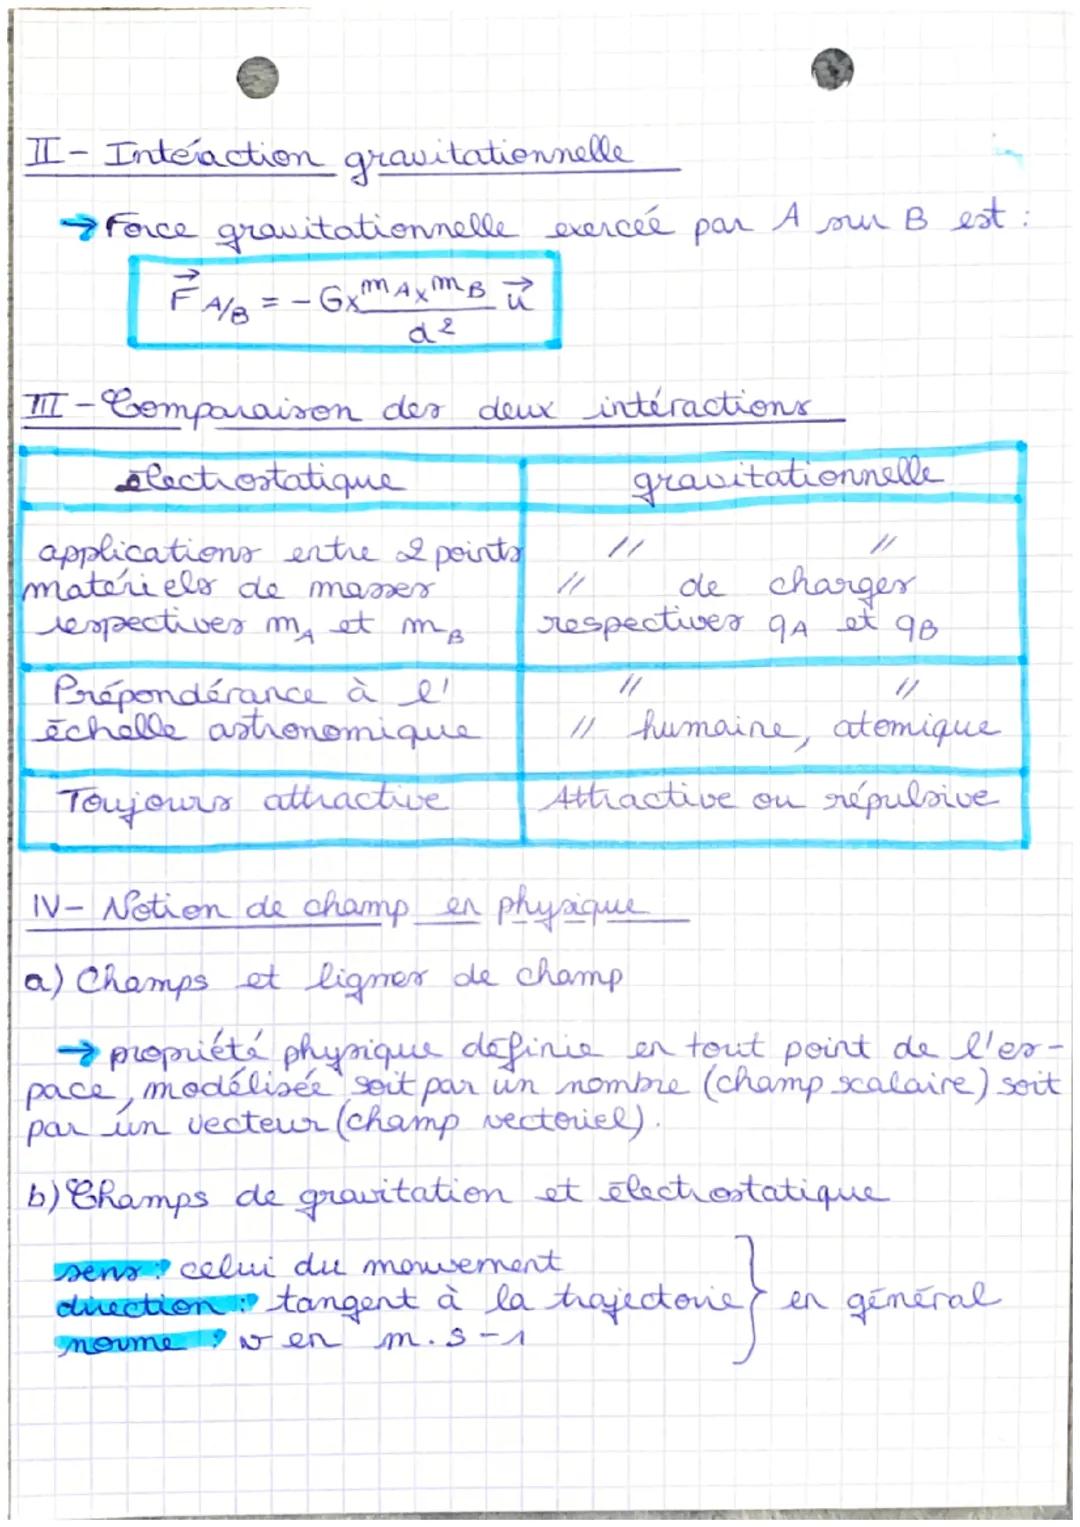 II - Intéraction gravitationnelle
→ Force gravitationnelle exercée par A sur B est :
F⃗ A/B = - G x mA x mB / d² u⃗
III - Comparaison des deux intéractions
électrostatique | gravitationnelle
applications entre 2 points | // //
matériels de masses | // de charges
respectives mA et mB | respectives qA et qB
Prépondérance à l' | // //
échelle astronomique | // humaine, atomique
Toujours attractive | Attractive ou répulsive
IV - Notion de champ en physique
a) Champs et lignes de champ
→ propriété physique définie en tout point de l'es-
pace, modélisée soit par un nombre (champ scalaire) soit
par un vecteur (champ vectoriel).
b) Champs de gravitation et électrostatique
sens : celui du mouvement
direction : tangent à la trajectoire } en général
norme : v en m.s-1